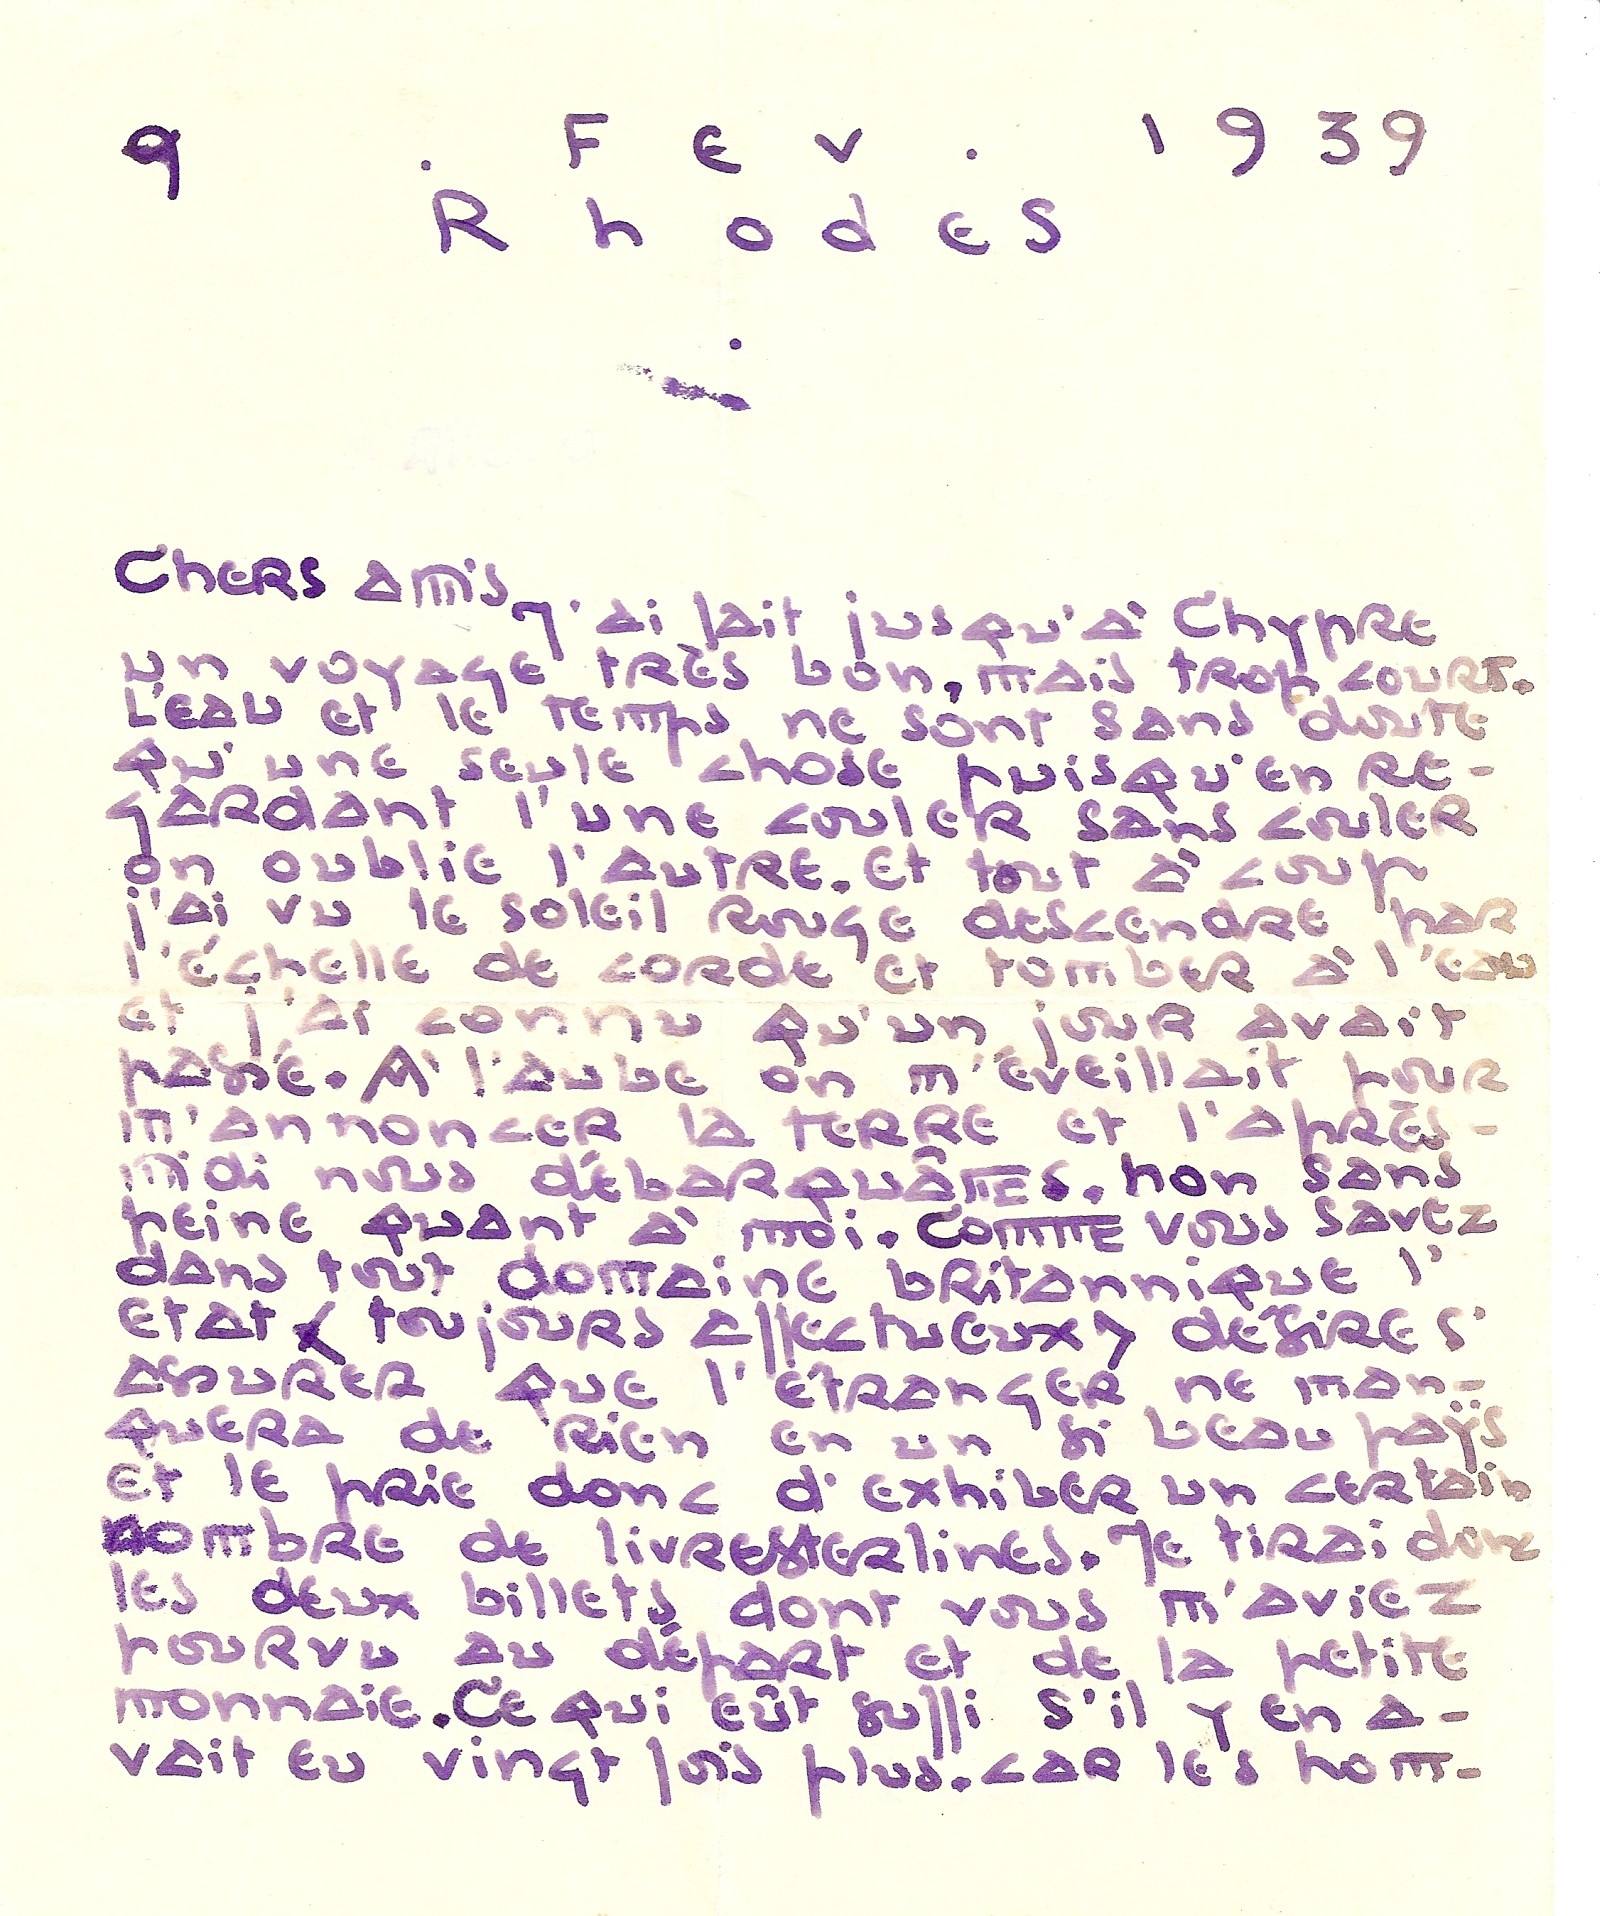 9 . Fev . 1939
Rhodes
.
Chers amis,
J'ai fait jusqu'à Chypre
un voyage très bon, mais trop court.
L'eau et le temps ne sont sans doute
qu'une seule chose puisqu'en re-
gardant l'une couler sans couler
on oublie l'autre. Et tout à coup
j'ai vu le soleil rouge descendre par
l'échelle de corde et tomber à l'eau
et j'ai connu qu'un jour avait
passé. A l'aube on m'éveillait pour
m'annoncer la terre et l'après-
midi nous débarquâmes. non sans
peine quant à moi. Comme vous savez
dans tout domaine britannique l'
etat (toujours affectueux) désire s'
assurer que l'étranger ne man-
quera de rien en un si beau paÿs
et le prie donc d'exhiber un certain
nombre de livressterlines. Je tirai donc
les deux billets dont vous m'aviez
pourvu au départ et de la petite
monnaie. Ce qui eût suffi s'il y en a-
vait eu vingt fois plus. car les hom-